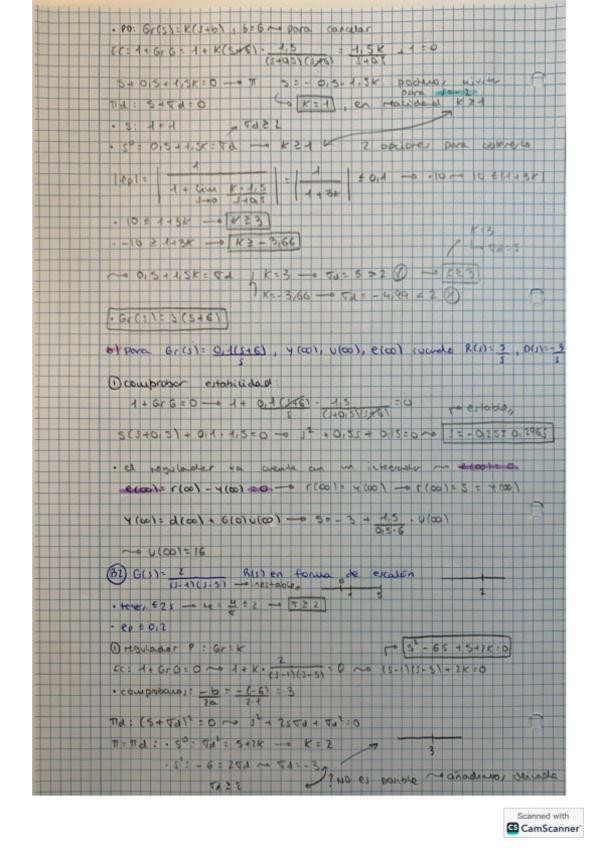 · PD: Gr(s)=K(s+b), b=6 → para cancelar
EC: 1+GrG = 1 + K(s+6) · 1,5/((s+0,5)(s+6)) = 1,5K/(s+0,5) + 1 = 0
s+0,5+1,5K=0 → π s=-0,5-1,5K podemos
para s=-2
πd: s+σd=0 K=1, en realidad K≥1
· s: 1=1 σd≥2
· s⁰: 0,5+1,5K=σd → K≥1 2 opciones para
|ep|= | 1/(1+lim s→0 K·1,5/(s+0,5)) | = | 1/(1+3K) | ≤0,1 → 10 ≤|1+3K|
· 10 ≤ 1+3K → K≥3 K=3
· -10 ≥ 1+3K → K≥-3,66 σd=5
→ 0,5+1,5K=σd K=3 → σd=5>2 → K≥3
K=-3,66 → σd=-4,99<2
· Gr(s)=3(s+6)
b) Para Gr(s)=0,1(s+6)/s, y(∞), u(∞), e(∞) cuando R(s)=5/s, D(s)=-3/s
① comprobar estabilidad:
1+GrG=0 → 1+ 0,1(s+6)/s · 1,5/((s+0,5)(s+6)) =0
→ estable
s(s+0,5)+0,1·1,5=0 → s²+0,5s+0,15=0 → s=-0,25±0,296j
· el regulador ya cuenta con un integrador → e(∞)=0
e(∞)=r(∞)-y(∞)=0 → r(∞)=y(∞) → r(∞)=5=y(∞)
y(∞)=d(∞)+G(0)u(∞) → 5=-3+ 1,5/(0,5·6) · u(∞)
→ u(∞)=16
32) G(s)= 2/((s-1)(s-5)) R(s) en forma de escalón
→ inestable
2
· ≤2s → 4/σ=2 → σ≥2
· ep≤0,2
① regulador P: Gr=K s²-6s+5+2K=0
EC: 1+GrG=0 → 1+K· 2/((s-1)(s-5)) =0 → (s-1)(s-5)+2K=0
· comprobamos: -b/2a = -(-6)/2·1 = 3
πd: (s+σd)²=0 → s²+2sσd+σd²=0
π=πd: · s⁰: σd²=5+2K → K=2
3
· s¹: -6=2σd → σd=-3
σd≥2 ? NO es posible → añadimos derivada
Scanned with
CS CamScanner